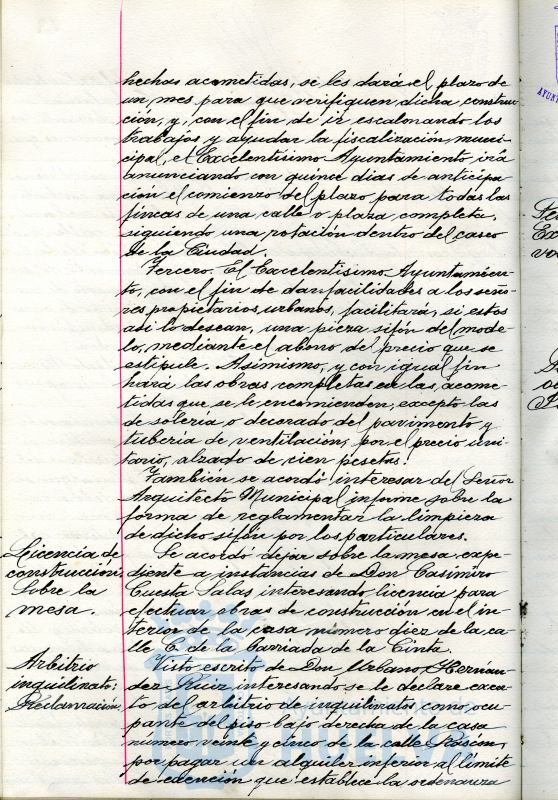 hechas acometidas, se les dará el plazo de
un mes para que verifiquen dicha construc
ción, y, con el fin de ir escalonando los
trabajos y ayudar la fiscalización muni-
cipal, el Excelentísimo Ayuntamiento irá
anunciando con quince dias de anticipa
ción el comienzo del plazo para todas las
fincas de una calle o plaza completa,
siguiendo una rotación dentro del casco
de la Ciudad.
Tercero. El Excelentísimo Ayuntamien-
to, con el fin de dar facilidades a los seño-
res propietarios urbanos, facilitará, si estos
asi lo desean, una pieza sifón del mode-
lo, mediante el abono del precio que se
estipule. Asimismo, y con igual fin
hará las obras completas en las acome-
tidas que se le encomienden, excepto las
de solería o decorado del pavimento y
tubería de ventilación, por el precio uni-
tario, alzado de cien pesetas.
También se acordó interesar del Señor
Arquitecto Municipal informe sobre la
forma de reglamentar la limpieza
de dicho sifón por los particulares.
Licencia de
construcción.
Sobre la
mesa.
Se acordó dejar sobre la mesa expe-
diente a instancias de Don Casimiro
Cuesta Salas interesando licencia para
efectuar obras de construcción en el in-
terior de la casa número diez de la ca-
lle C. de la barriada de la Cinta.
Arbitrio
inquilinato:
Reclamación.
Visto escrito de Don Urbano Hernan-
dez Ruiz interesando se le declare exen-
to del arbitrio de inquilinato como ocu-
pante del piso bajo derecha de la casa
número veinte y cinco de la calle
por pagar un alquiler inferior al límite
de exención que establece la ordenanza